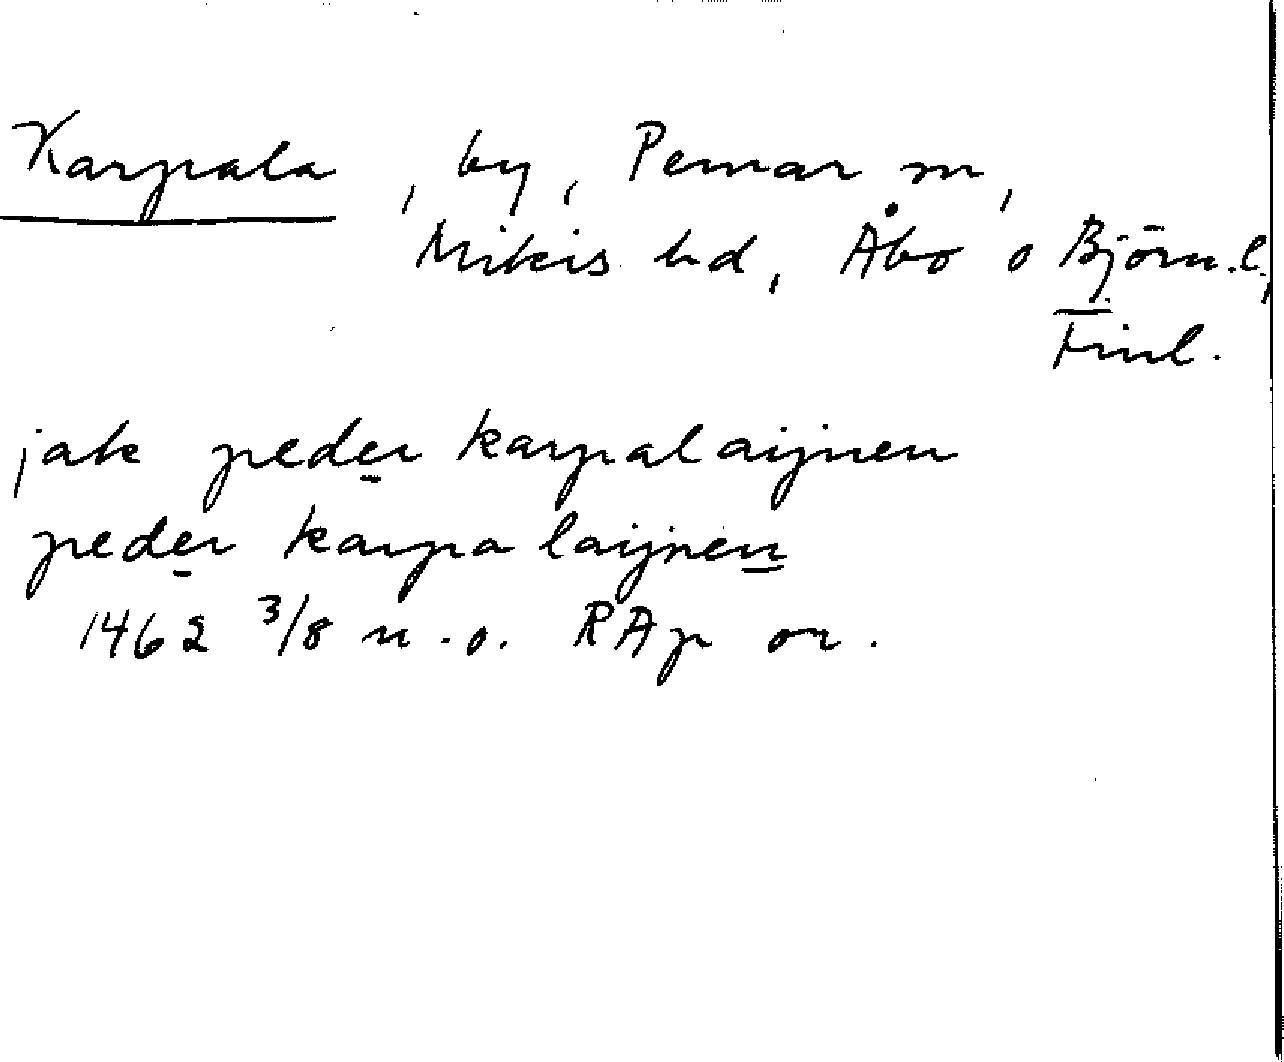 Karpala, by, Pemar sn,
Mikis hd, Åbo o Björn. l.,
Finl.
jak peder karpalaijnen
peder karpalaijnen
1462 3/8 u.o. RAp or.